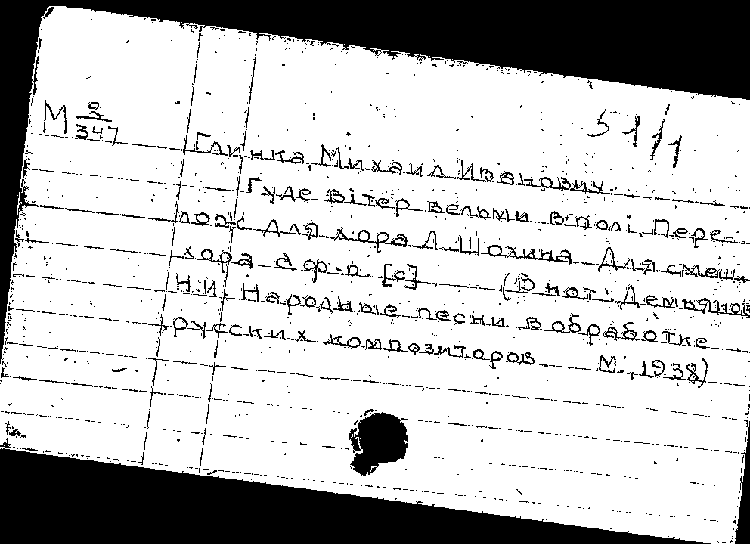 51/1
М 2/347
Глинка, Михаил Иванович.
Гуде вітер вельми в полі. Пере-
лож. для хора Л. Шохина. Для смеш.
хора а ф.-п. [c] (В нот: Демьянов
Н.И. Народные песни в обработке
русских композиторов. М., 1938)